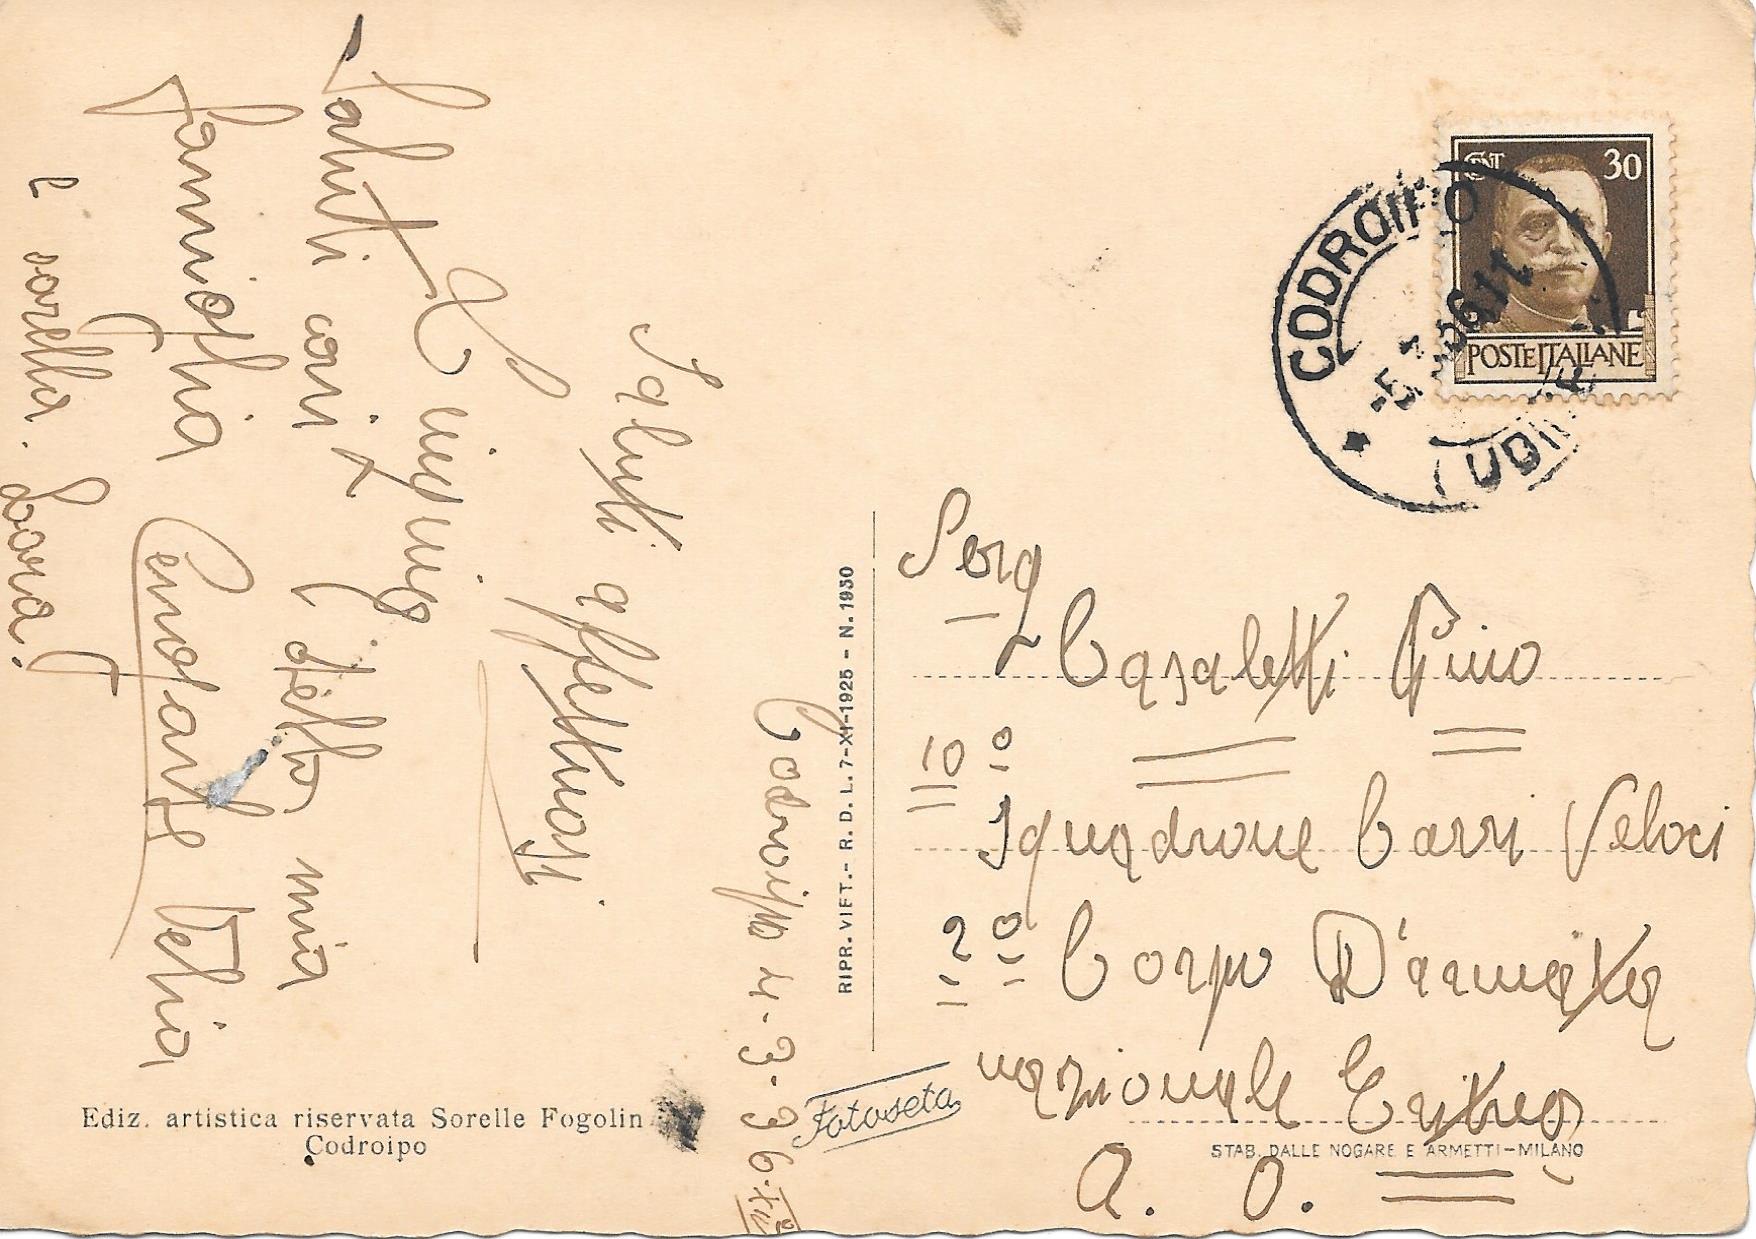 Codroipo 4-3-36-XIV°
Saluti affettuosi
L. 
Saluti cari
famiglia
e sorella. Dora.
Cenotante Velia
CENT 30
POSTE ITALIANE
CODROIPO
-5.3.36.11
(UDINE)
Serg
Casaletti Gino
10°
Squadrone Carri Veloci
2° Corpo D'armata
nazionale Eritrea
A. O.
RIPR. VIET. - R. D. L. 7-XI-1925 - N. 1930
Fotoseta
Ediz. artistica riservata Sorelle Fogolin
Codroipo
STAB. DALLE NOGARE E ARMETTI-MILANO